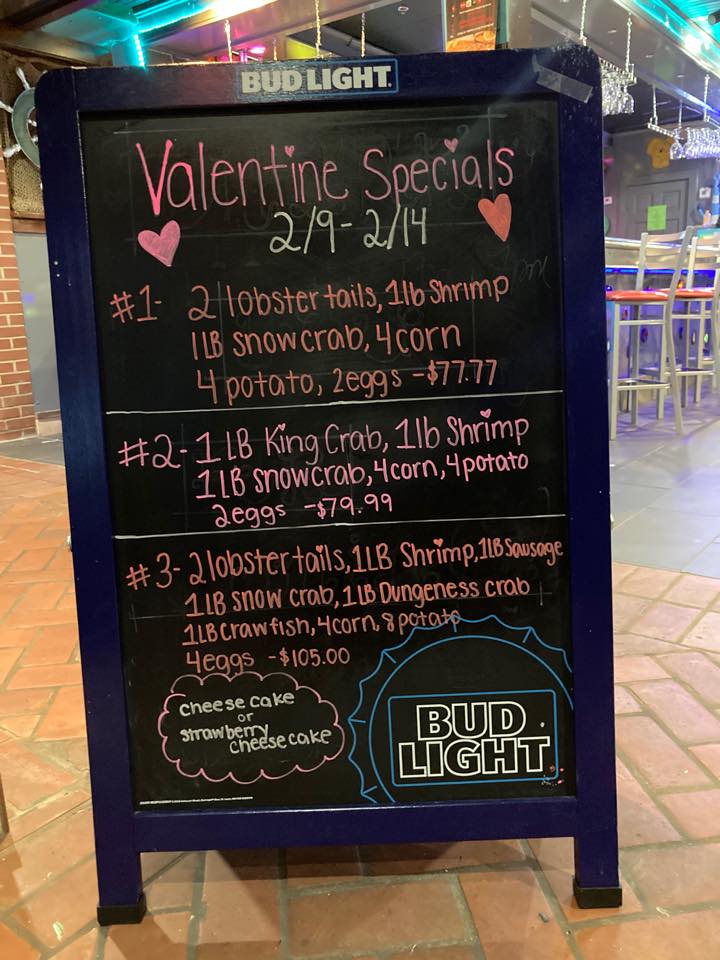 BUD LIGHT
Valentine Specials
2/9-2/14
#1- 2 lobster tails, 1lb Shrimp
1LB snow crab, 4 corn
4 potato, 2 eggs -$77.77
#2- 1 LB King Crab, 1lb Shrimp
1LB snowcrab, 4 corn, 4 potato
2 eggs -$79.99
#3- 2 lobster tails, 1LB Shrimp, 1LB Sausage
1LB snow crab, 1LB Dungeness crab
1LB crawfish, 4 corn, 8 potato
4 eggs -$105.00
cheese cake
or
strawberry
cheese cake
BUD
LIGHT